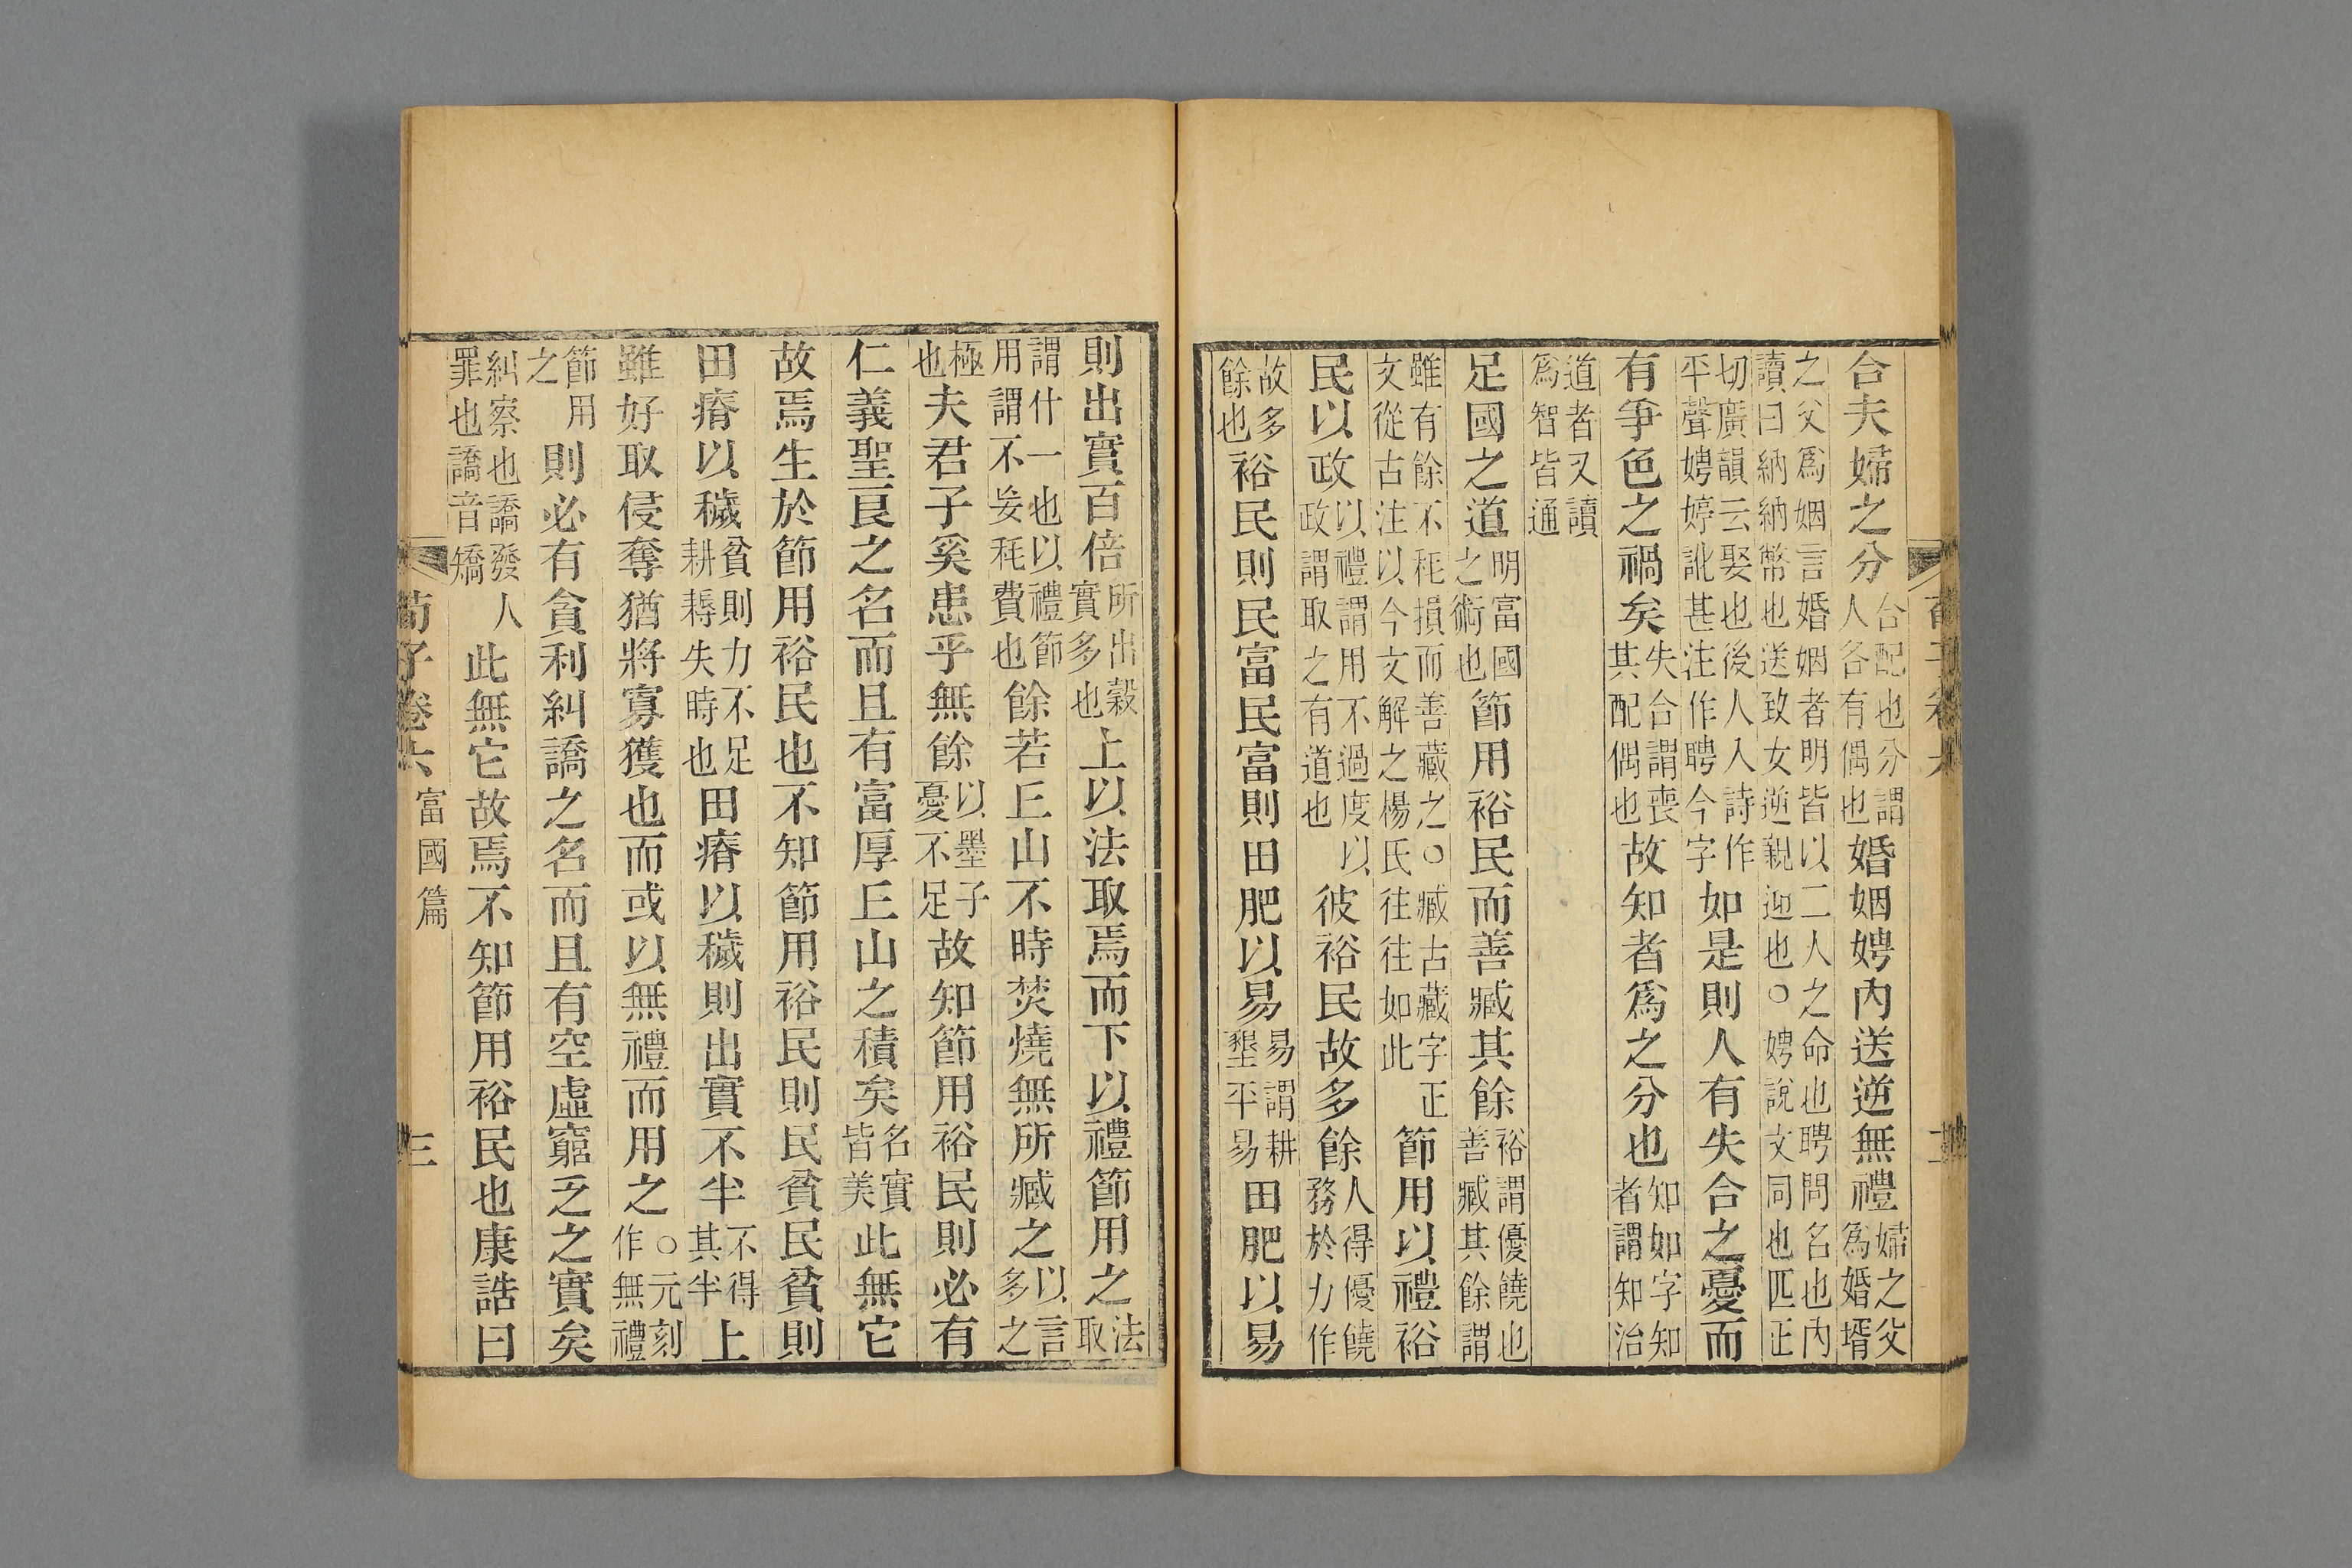 合夫婦之分合配也分謂人各有偶也婚姻娉內送逆無禮婦之父爲婚壻
之父爲姻言婚姻者明皆以二人之命也聘問名也內讀曰納納幣也送致女逆親迎也○娉說文同也匹正
切廣韻云娶也後人入詩作平聲娉婷訛甚注作聘今字如是則人有失合之憂而
有爭色之禍矣失合謂喪其配偶也故知者爲之分也知如字知者謂知治
道者又讀爲智皆通
足國之道明富國之術也節用裕民而善臧其餘裕謂優饒也善臧其餘謂
雖有餘不秏損而善藏之○臧古藏字正文從古注以今文解之楊氏往往如此節用以禮裕
民以政以禮謂用不過度以政謂取之有道也彼裕民故多餘人得優饒務於力作
故多餘也裕民則民富民富則田肥以易易謂耕墾平易田肥以易
則出實百倍所出穀實多也上以法取焉而下以禮節用之法取
謂什一也以禮節用謂不妄秏費也餘若丘山不時焚燒無所臧之以言多之
極也夫君子奚患乎無餘以墨子憂不足故知節用裕民則必有
仁義聖良之名而且有富厚丘山之積矣名實皆美此無它
故焉生於節用裕民也不知節用裕民則民貧民貧則
田瘠以穢貧則力不足耕耨失時也田瘠以穢則出實不半不得其半上
雖好取侵奪猶將寡獲也而或以無禮而用之○元刻作無禮
節用之則必有貪利糾譑之名而且有空虛窮乏之實矣
糾察也譑發人罪也譑音矯此無它故焉不知節用裕民也康誥曰
荀子卷六 富國篇 三